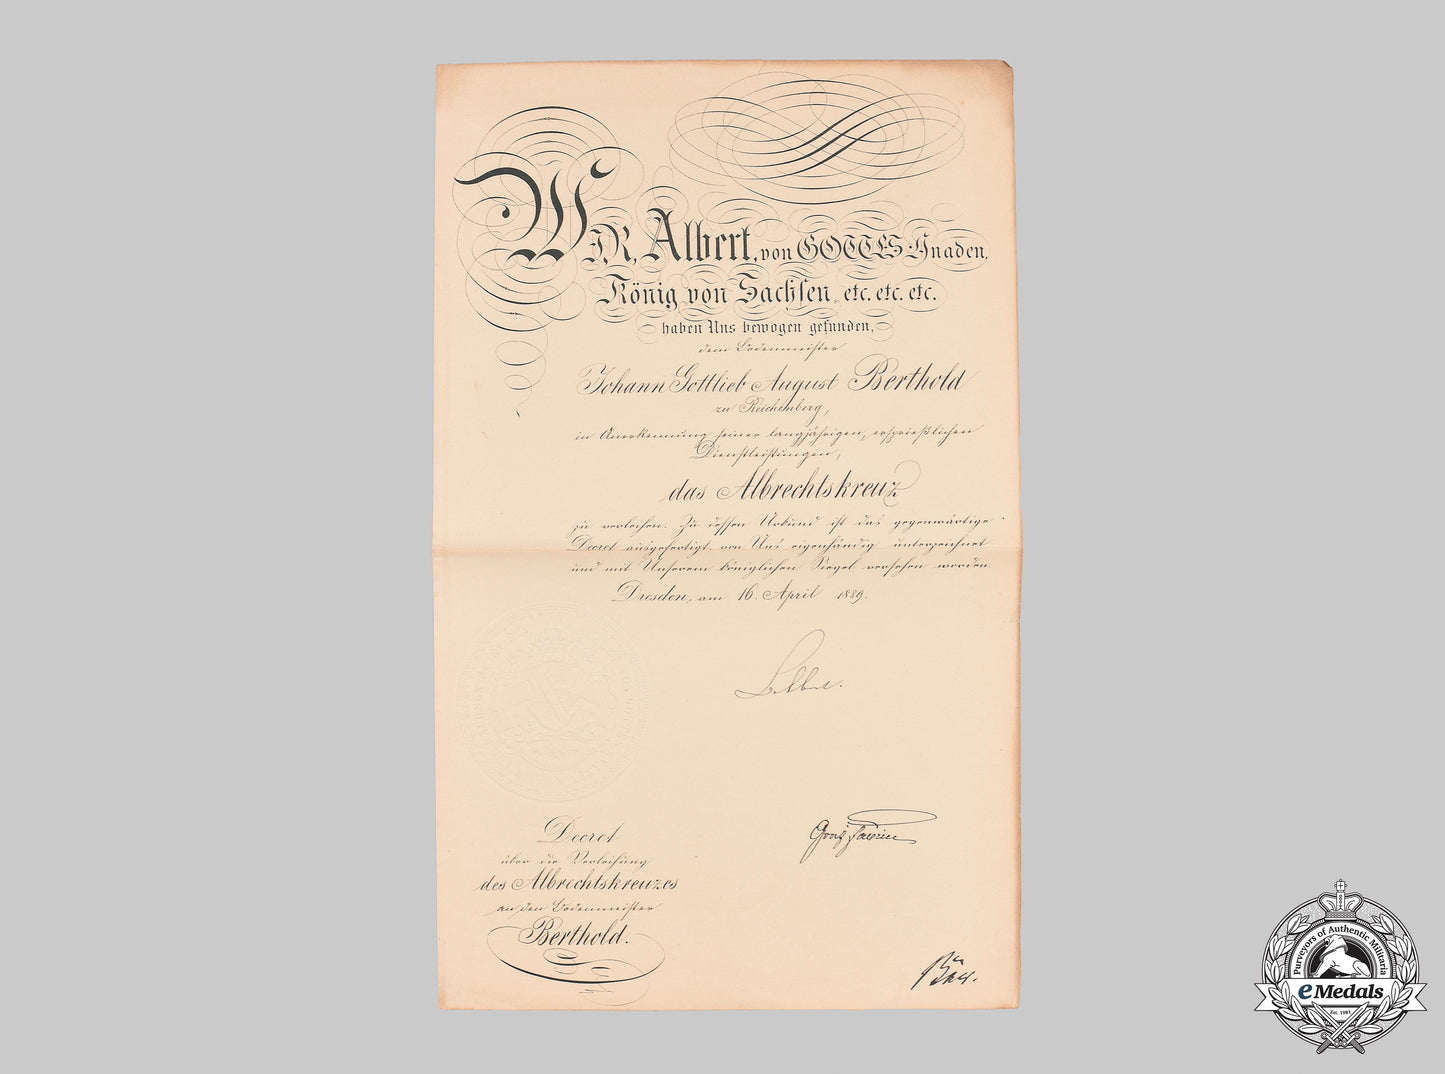 WIR, Albert, von GOTTES Gnaden,
König von Sachsen etc. etc. etc.
haben Uns bewogen gefunden,
dem Bodenmeister
Johann Gottlieb August Berthold
zu Reichenberg,
in Anerkennung seiner langjährigen, ersprießlichen
Dienstleistungen,
das Albrechtskreuz
zu verleihen. Zu dessen Urkund ist das gegenwärtige
Decret ausgefertigt, von Uns eigenhändig unterzeichnet
und mit Unserem königlichen Siegel versehen worden.
Dresden, am 16. April 1889.
Albert.
Decret
über die Verleihung
des Albrechtskreuzes
an den Bodenmeister
Berthold.
Purveyors of Authentic Militaria
eMedals
Est. 1981